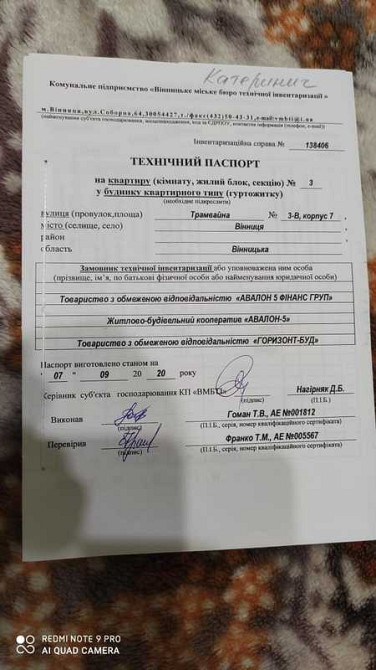 Катеринич
Комунальне підприємство «Вінницьке міське бюро технічної інвентаризації»
м.Вінниця,вул.Соборна,64,30054427,т./факс(432)50-43-31,email:vmbti@i.ua
(найменування суб'єкта господарювання, місцезнаходження, код за ЄДРПОУ, контактна інформація (телефон, e-mail))
Інвентаризаційна справа № 138406
ТЕХНІЧНИЙ ПАСПОРТ
на квартиру (кімнату, жилий блок, секцію) № 3
у будинку квартирного типу (гуртожитку)
(необхідне підкреслити)
вулиця (провулок,площа) Трамвайна № 3-В, корпус 7 ,
місто (селище, село) Вінниця
район
область Вінницька
Замовник технічної інвентаризації або уповноважена ним особа
(прізвище, ім'я, по батькові фізичної особи або найменування юридичної особи)
Товариство з обмеженою відповідальністю «АВАЛОН 5 ФІНАНС ГРУП»
Житлово-будівельний кооператив «АВАЛОН-5»
Товариство з обмеженою відповідальністю «ГОРИЗОНТ-БУД»
Паспорт виготовлено станом на
" 07 " 09 20 20 року
Керівник суб'єкта господарювання КП «ВМБТІ» Нагірняк Д.Б.
(підпис) (П.І.Б.)
Виконав Гоман Т.В., АЕ №001812
(підпис) (П.І.Б., серія, номер кваліфікаційного сертифіката)
Перевірив Франко Т.М., АЕ №005567
(підпис) (П.І.Б., серія, номер кваліфікаційного сертифіката)
REDMI NOTE 9 PRO
AI QUAD CAMERA